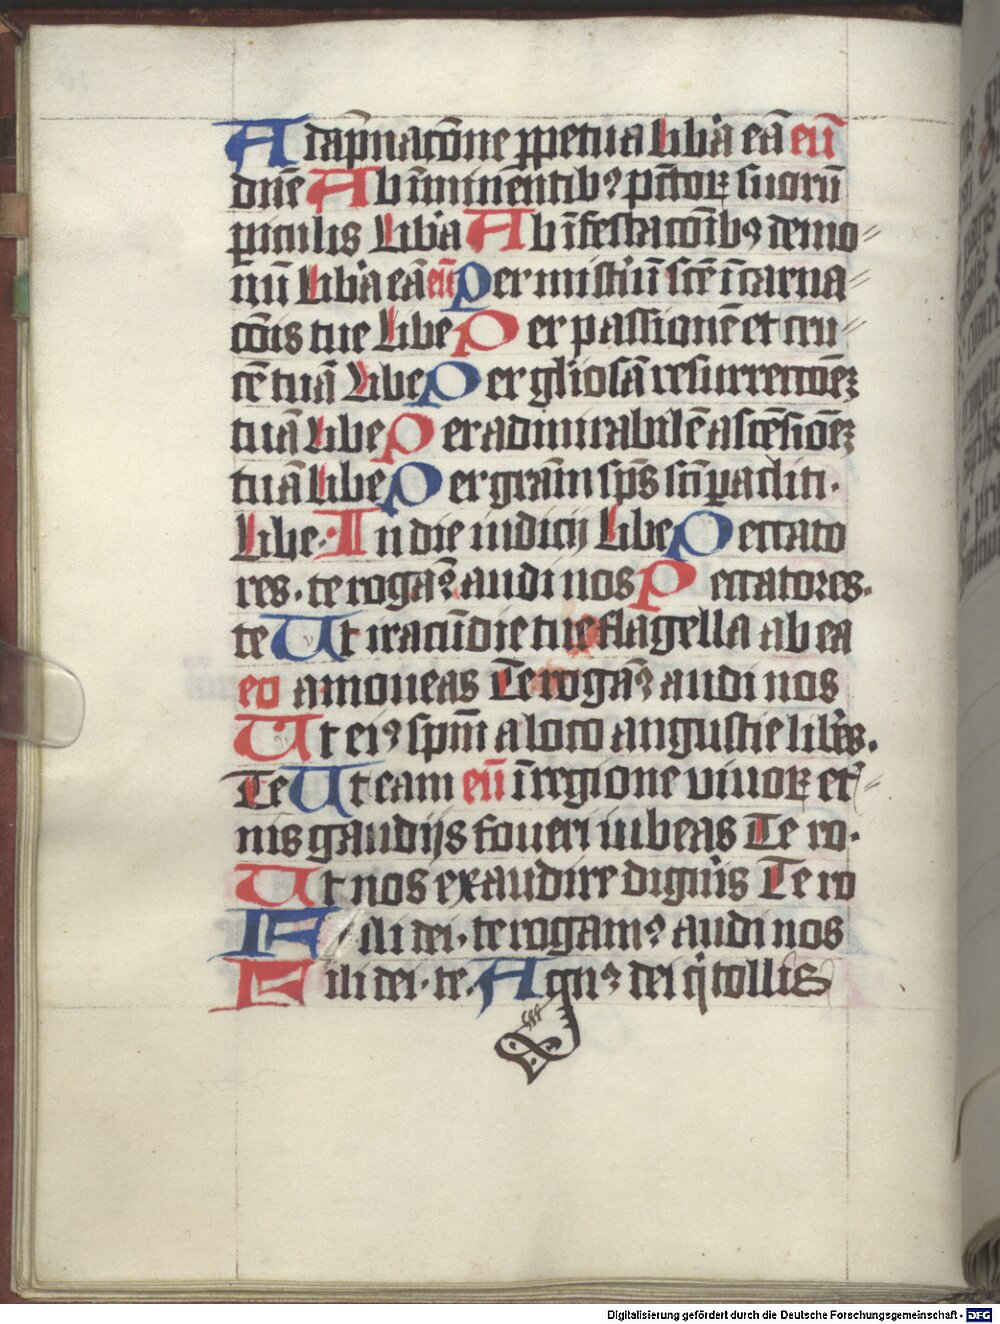 A dāpnacōne ꝑpetua liba eā eū
dn̄e Ab īminētibꝰ pc̄torꝝ suorū
piculis Liba Ab īfestacōibꝰ demo
nū Liba eā eū Per misṫiū sc̄e īcarna
cōis tue Libe Per passionē et cru
cē tuā Libe Per gl̄iosā resurrectōeꝫ
tuā Libe Per admirabilē ascēsiōeꝫ
tuā Libe Per grām sp̄s sc̄i pacliti.
Libe. In die iudicij Libe Peccato
res. te rogaꝰ audi nos Peccatores.
te Ut iracūdie tue flagella ab ea
eo amoueas Te rogāꝰ audi nos
Ut eiꝰ sp̄m a loco angustie libes.
Te Ut eam eū ī regione viuorꝝ et
nis gaudijs foueri iubeas Te ro.
Ut nos exaudire digneris Te ro
Fili dei. te rogamꝰ audi nos
Fili dei. te. Agnꝰ dei q tollis
Digitalisierung gefördert durch die Deutsche Forschungsgemeinschaft - DFG